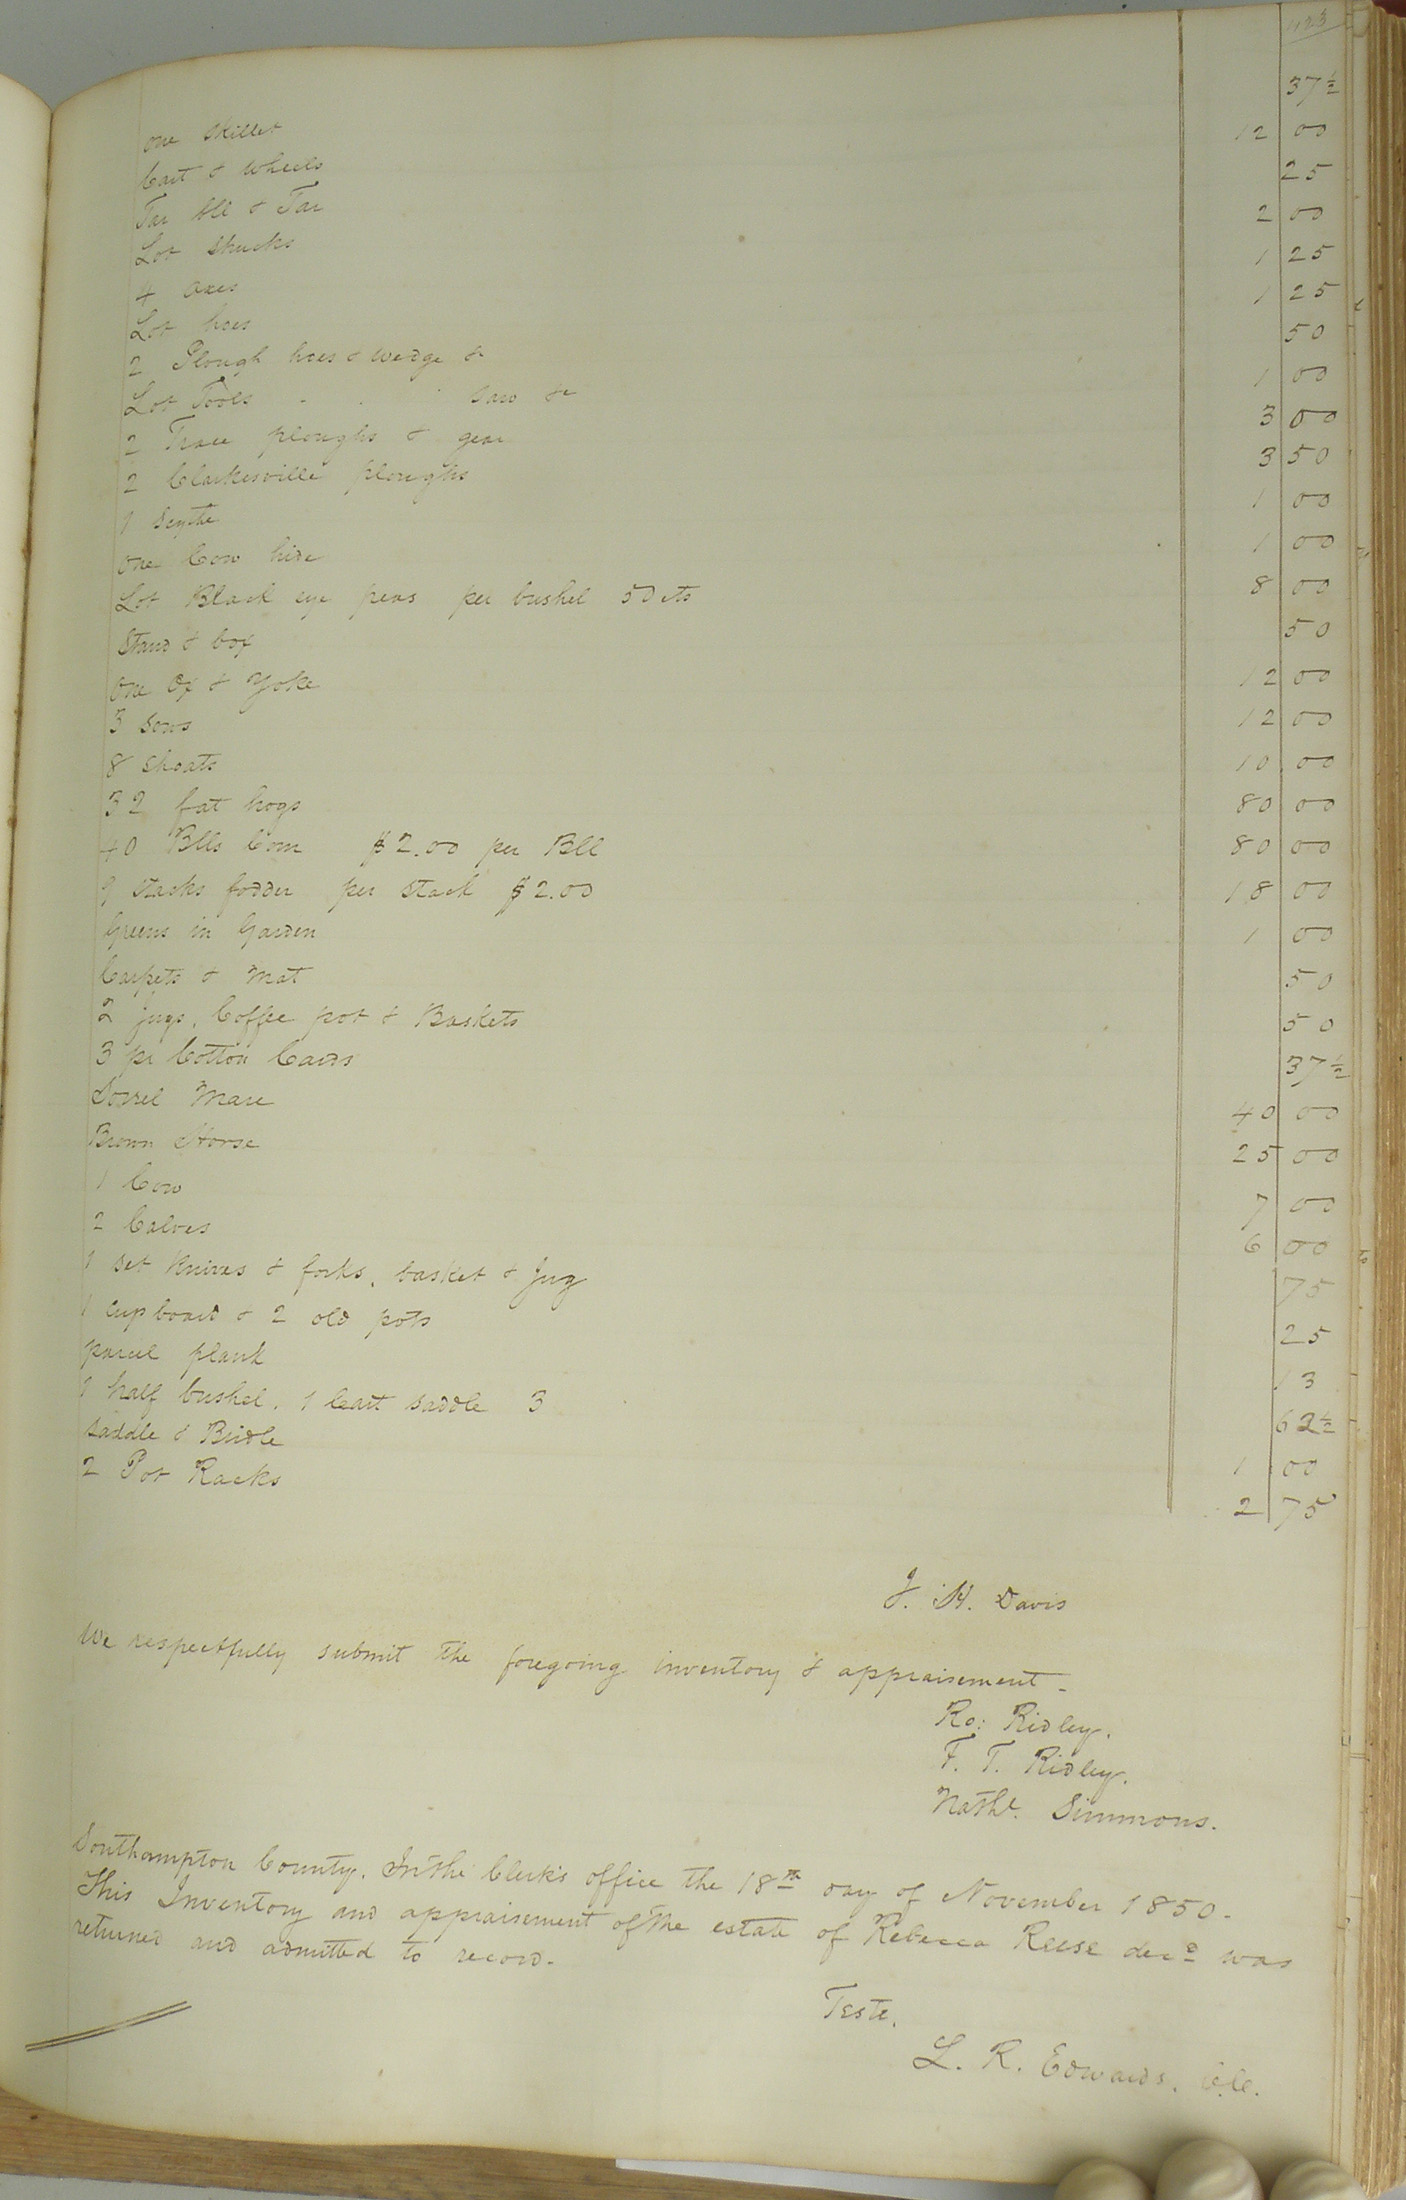 423
one skillet 37½
Cart & wheels 12 00
Tar bll & Tar 25
Lot shucks 2 00
4 axes 1 25
Lot hoes 1 25
2 Plough hoes & wedge &c 50
Lot Tools - . . saw &c 1 00
2 Trace ploughs & gear 3 00
2 Clarkesville ploughs 3 50
1 Scythe 1 00
one Cow hide 1 00
Lot Black eye peas per bushel 50 cts 8 00
Stand & box 50
One Ox & Yoke 12 00
3 Sows 12 00
8 Shoats 10 00
32 fat hogs 80 00
40 Blls Corn $2.00 per Bll 80 00
9 stacks fodder per stack $2.00 18 00
Greens in Garden 1 00
Carpets & Mat 50
2 jugs, Coffee pot & Baskets 50
3 pr Cotton Cards 37½
Sorrel Mare 40 00
Brown Horse 25 00
1 Cow 7 00
2 Calves 6 00
1 set Knives & forks, basket & Jug 75
1 cupboard & 2 old pots 25
parcel plank 13
1 half bushel, 1 Cart saddle 3 62½
Saddle & Bridle 1 00
2 Pot Racks 2 75
J. H. Davis
We respectfully submit the foregoing inventory & appraisement -
Ro: Ridley.
F. T. Ridley.
Nathl. Simmons.
Southampton County. In the Clerk's office the 18th day of November 1850.
This Inventory and appraisement of the estate of Rebecca Reese decd was
returned and admitted to record.
Teste,
L. R. Edwards, C.C.